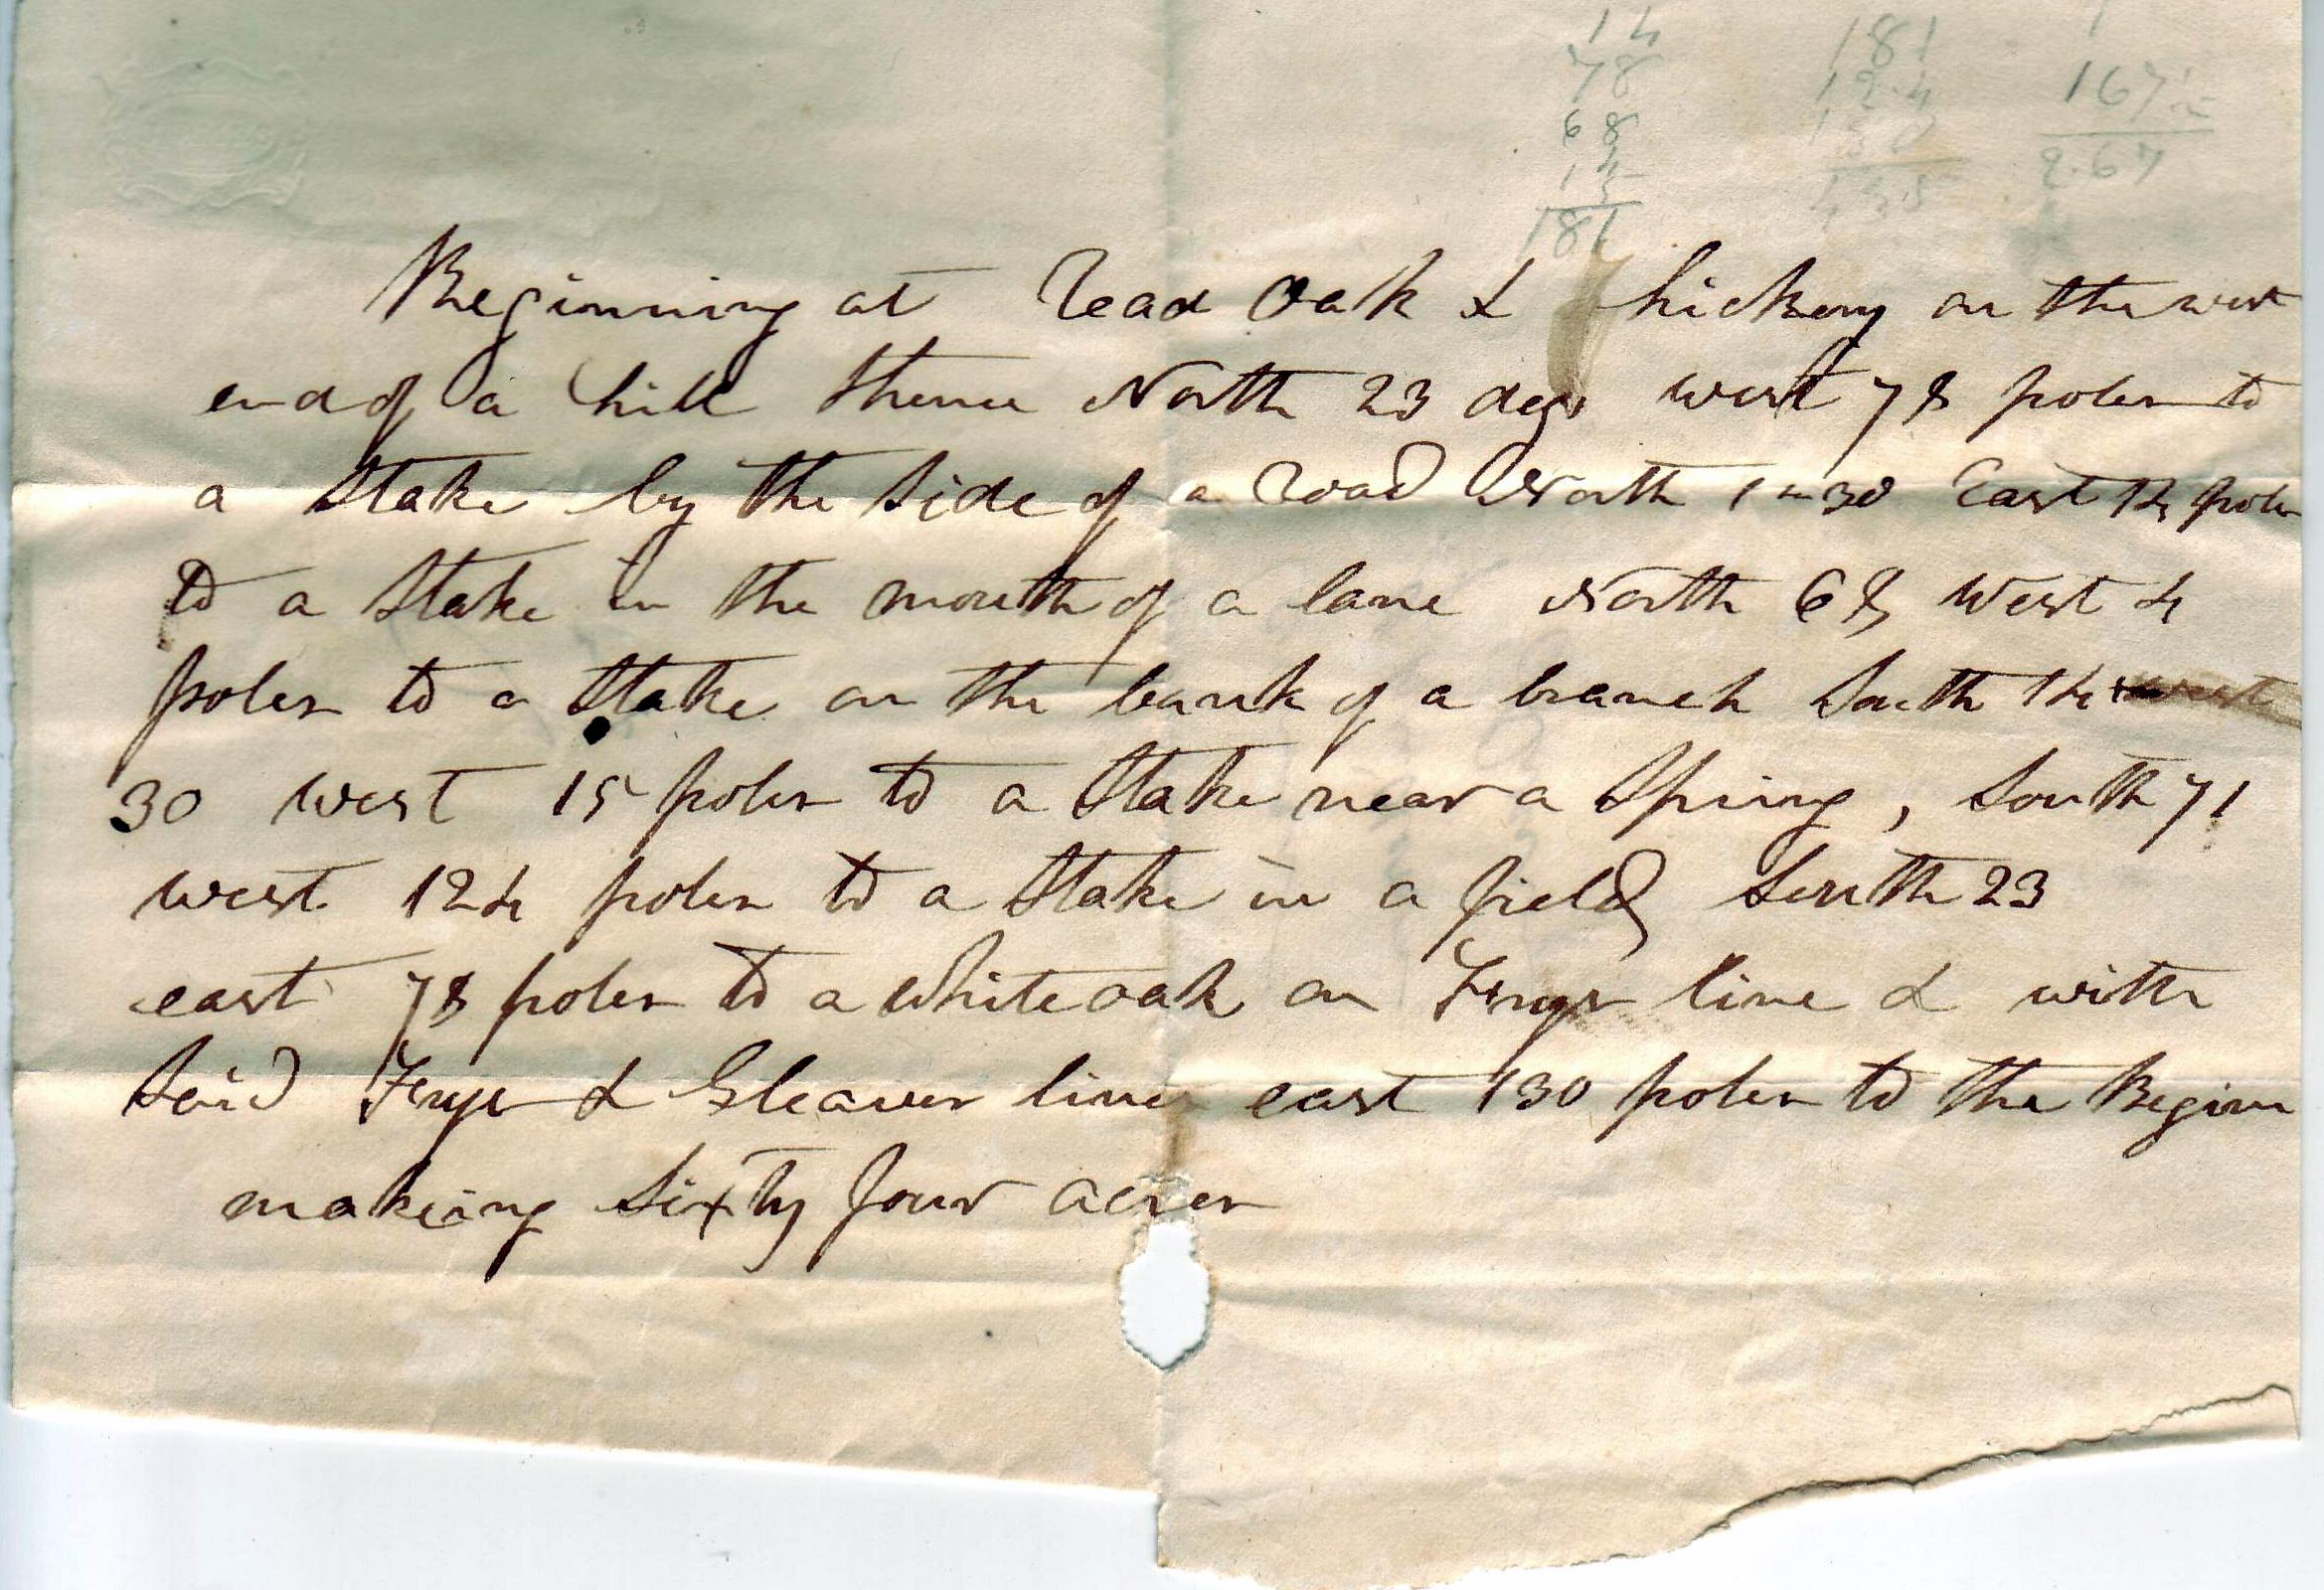 14 181 1
78 124 167
68 130 267
14 435
181
Beginning at Read Oak & hickory on the west
end of a hill thence North 23 degs west 78 poles to
a Stake by the Side of a Road North 1 - 30 East 14 poles
to a Stake in the mouth of a lane North 68 West 4
poles to a Stake on the bank of a branch South 14
30 west 15 poles to a Stake near a Spring, South 71
west 124 poles to a Stake in a field South 23
east 78 poles to a White oak on Frys line & with
Said Frys & Gleaves lines east 130 poles to the Beginn
making Sixty four acres